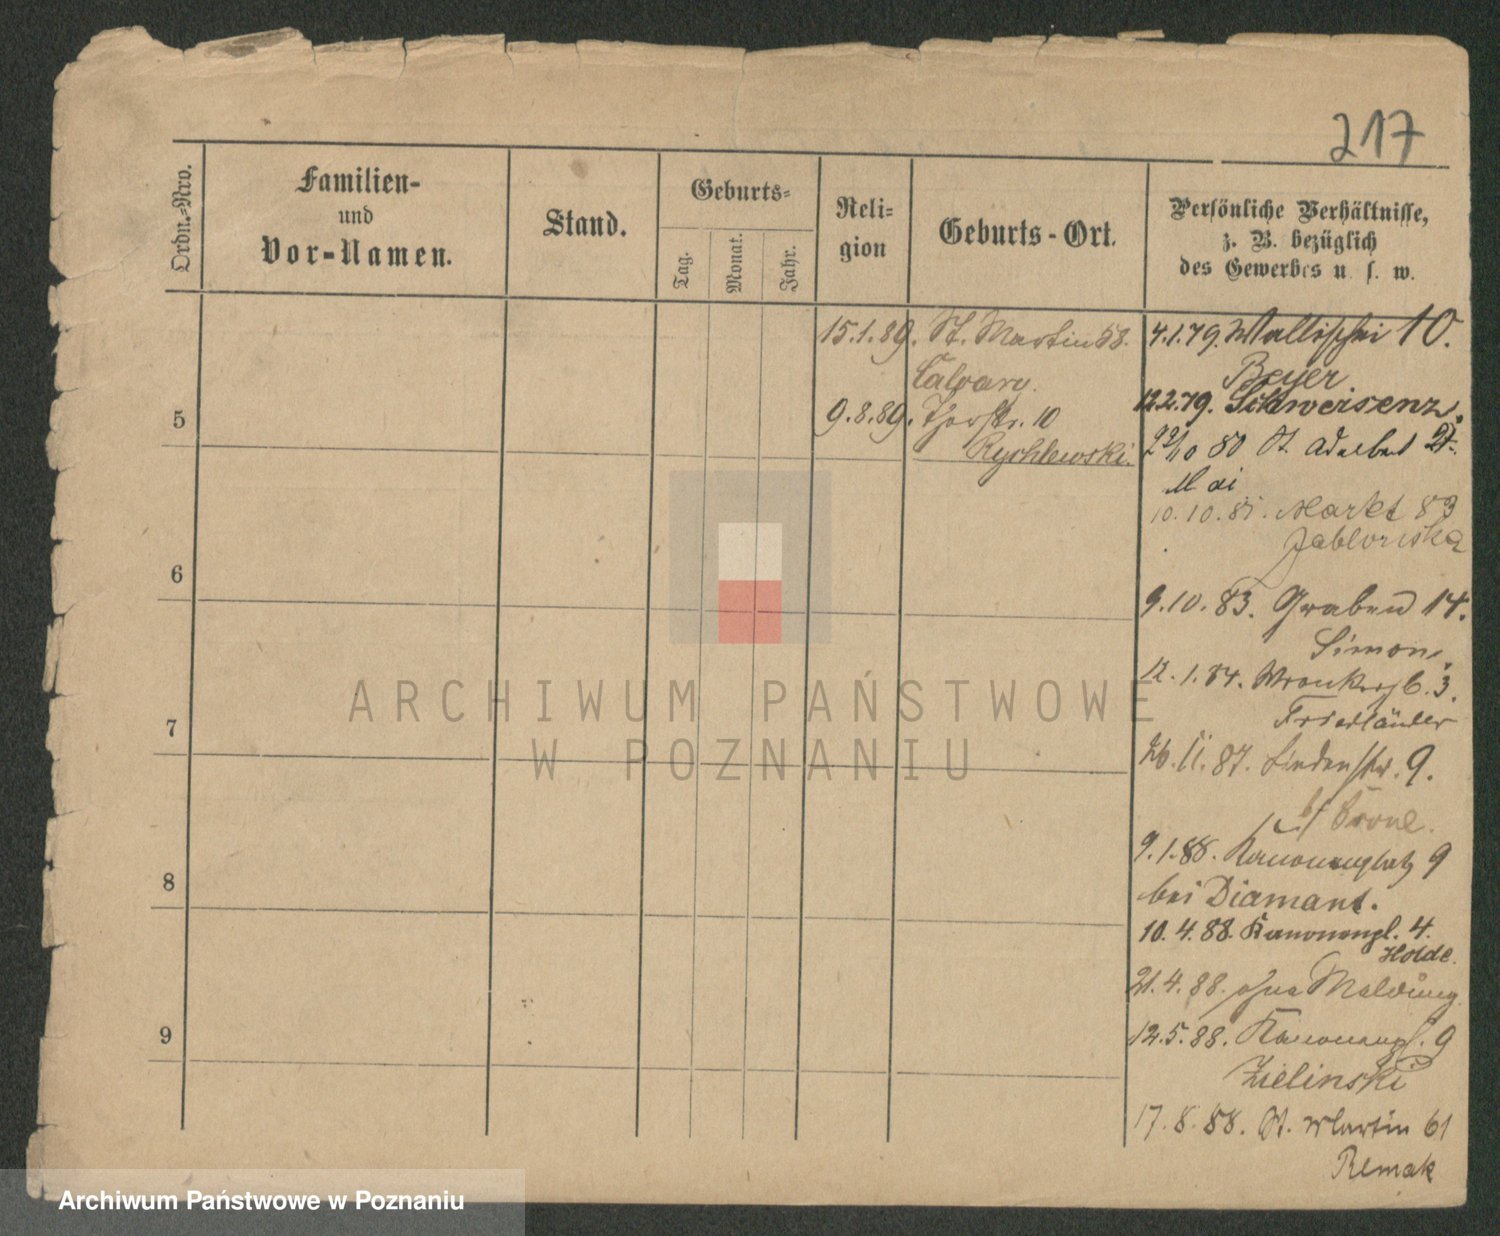 217
Ordn.-Nro.
Familien-
und
Vor-Namen.
Stand.
Geburts-
Tag.
Monat.
Jahr.
Reli-
gion
Geburts-Ort.
Persönliche Verhältnisse,
z. B. bezüglich
des Gewerbes u. s. w.
15.1.89. St. Martin 58.
Calvary.
9.8.89. Thorstr. 10
Rychlewski.
4.1.79. Wallischei 10.
Beyer
12.2.79. Schwersenz.
80 St. Adalbert
Mai
10.10.81. Markt 83
Jablonska
9.10.83. Graben 14.
Simon.
12.1.84. 3.
Friedländer
26.11.87. Lindenstr. 9.
b/ Krone.
9.1.88. Kanonenplatz 9
bei Diamant.
10.4.88. Kanonenpl. 4.
Holde.
21.4.88. ohne Meldung.
12.5.88. Kanonenpl. 9
Zielinski
17.8.88. St. Martin 61
Remak
5
6
7
8
9
ARCHIWUM PAŃSTWOWE
W POZNANIU
Archiwum Państwowe w Poznaniu